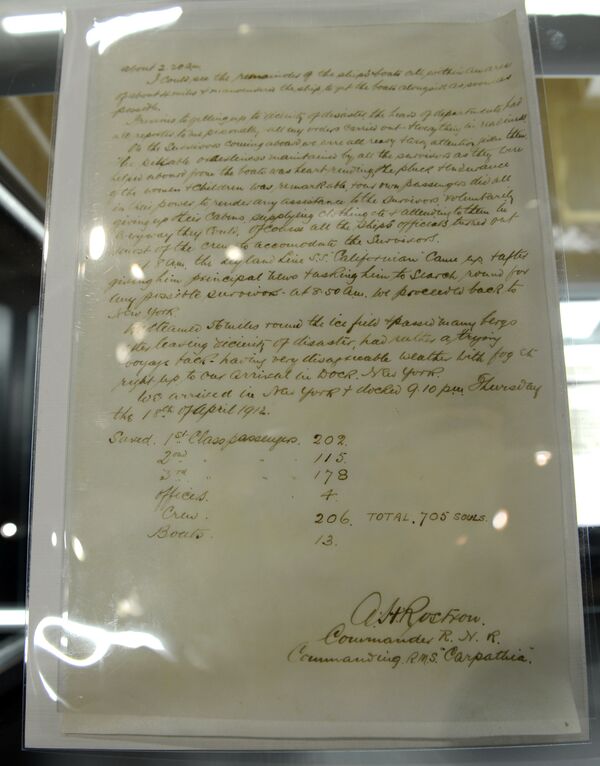 about 2.20 am
I could see the remainder of the ship's boats all within an area
of about 4 miles & manoeuvred the ship to get the boats alongside as soon as
possible.
Previous to getting up to vicinity of disaster the heads of departments had
all reported to me personally all my orders carried out & everything in readiness
On the Survivors coming aboard we were all ready & every attention given them
the quietness maintained by all the survivors as they were
being aboard from the boats was heart rending, the pluck & endurance
of the women & children was remarkable, & our own passengers did all
in their power to render any assistance to the survivors voluntarily
giving up their cabins, supplying clothing etc & attending to them in
everyway they could, of course all the ship's officials turned out
most of the crew to accomodate the survivors.
8 am. the Leyland line SS "Californian" came up & after
giving him principal news & asking him to search round for
any possible survivors - at 8.50 am. we proceeded back to
New York.
We steamed 56 miles round the ice field & passed many bergs
after leaving vicinity of disaster, had rather a trying
voyage back having very disagreeable weather with fog etc
right up to our arrival in Dock. New York.
We arrived in New York & docked 9.10 pm Thursday
the 18th of April 1912.
Saved. 1st Class passengers. 202.
2nd " " 115.
3rd " " 178
officers. 4.
Crew. 206. TOTAL. 705 SOULS.
Boats. 13.
A.H Rostron.
Commander R. N. R.
Commanding. R.M.S. "Carpathia".